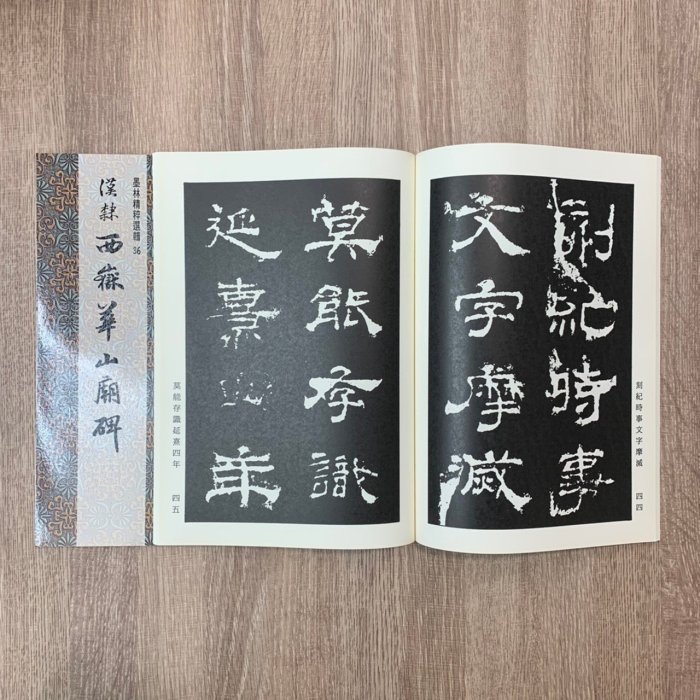 墨林精粹選輯 36
漢隸 西嶽華山廟碑
刻紀時事
文字摩滅
刻紀時事文字摩滅 四四
莫能存識
延熹四年
莫能存識延熹四年 四五